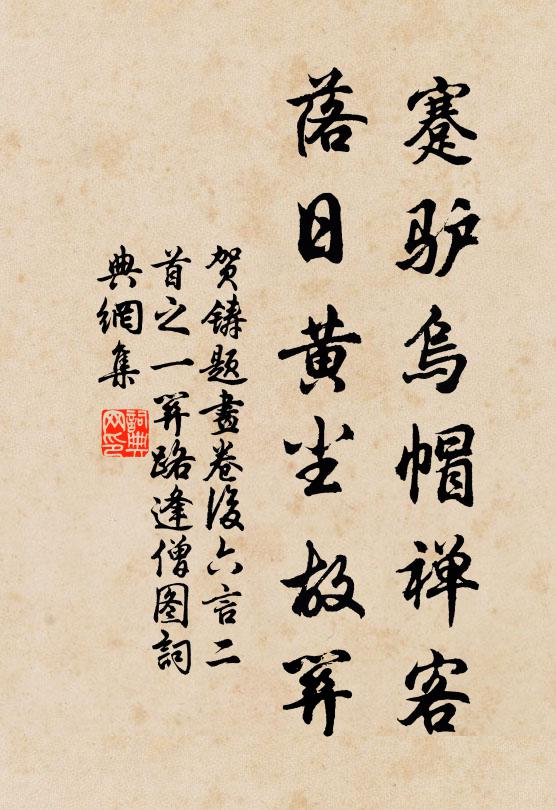 蹇驴烏帽禅客
落日黄尘故关
贺铸题畫卷後六言二
首之一关路逢僧图詞
典網集
詞典网印